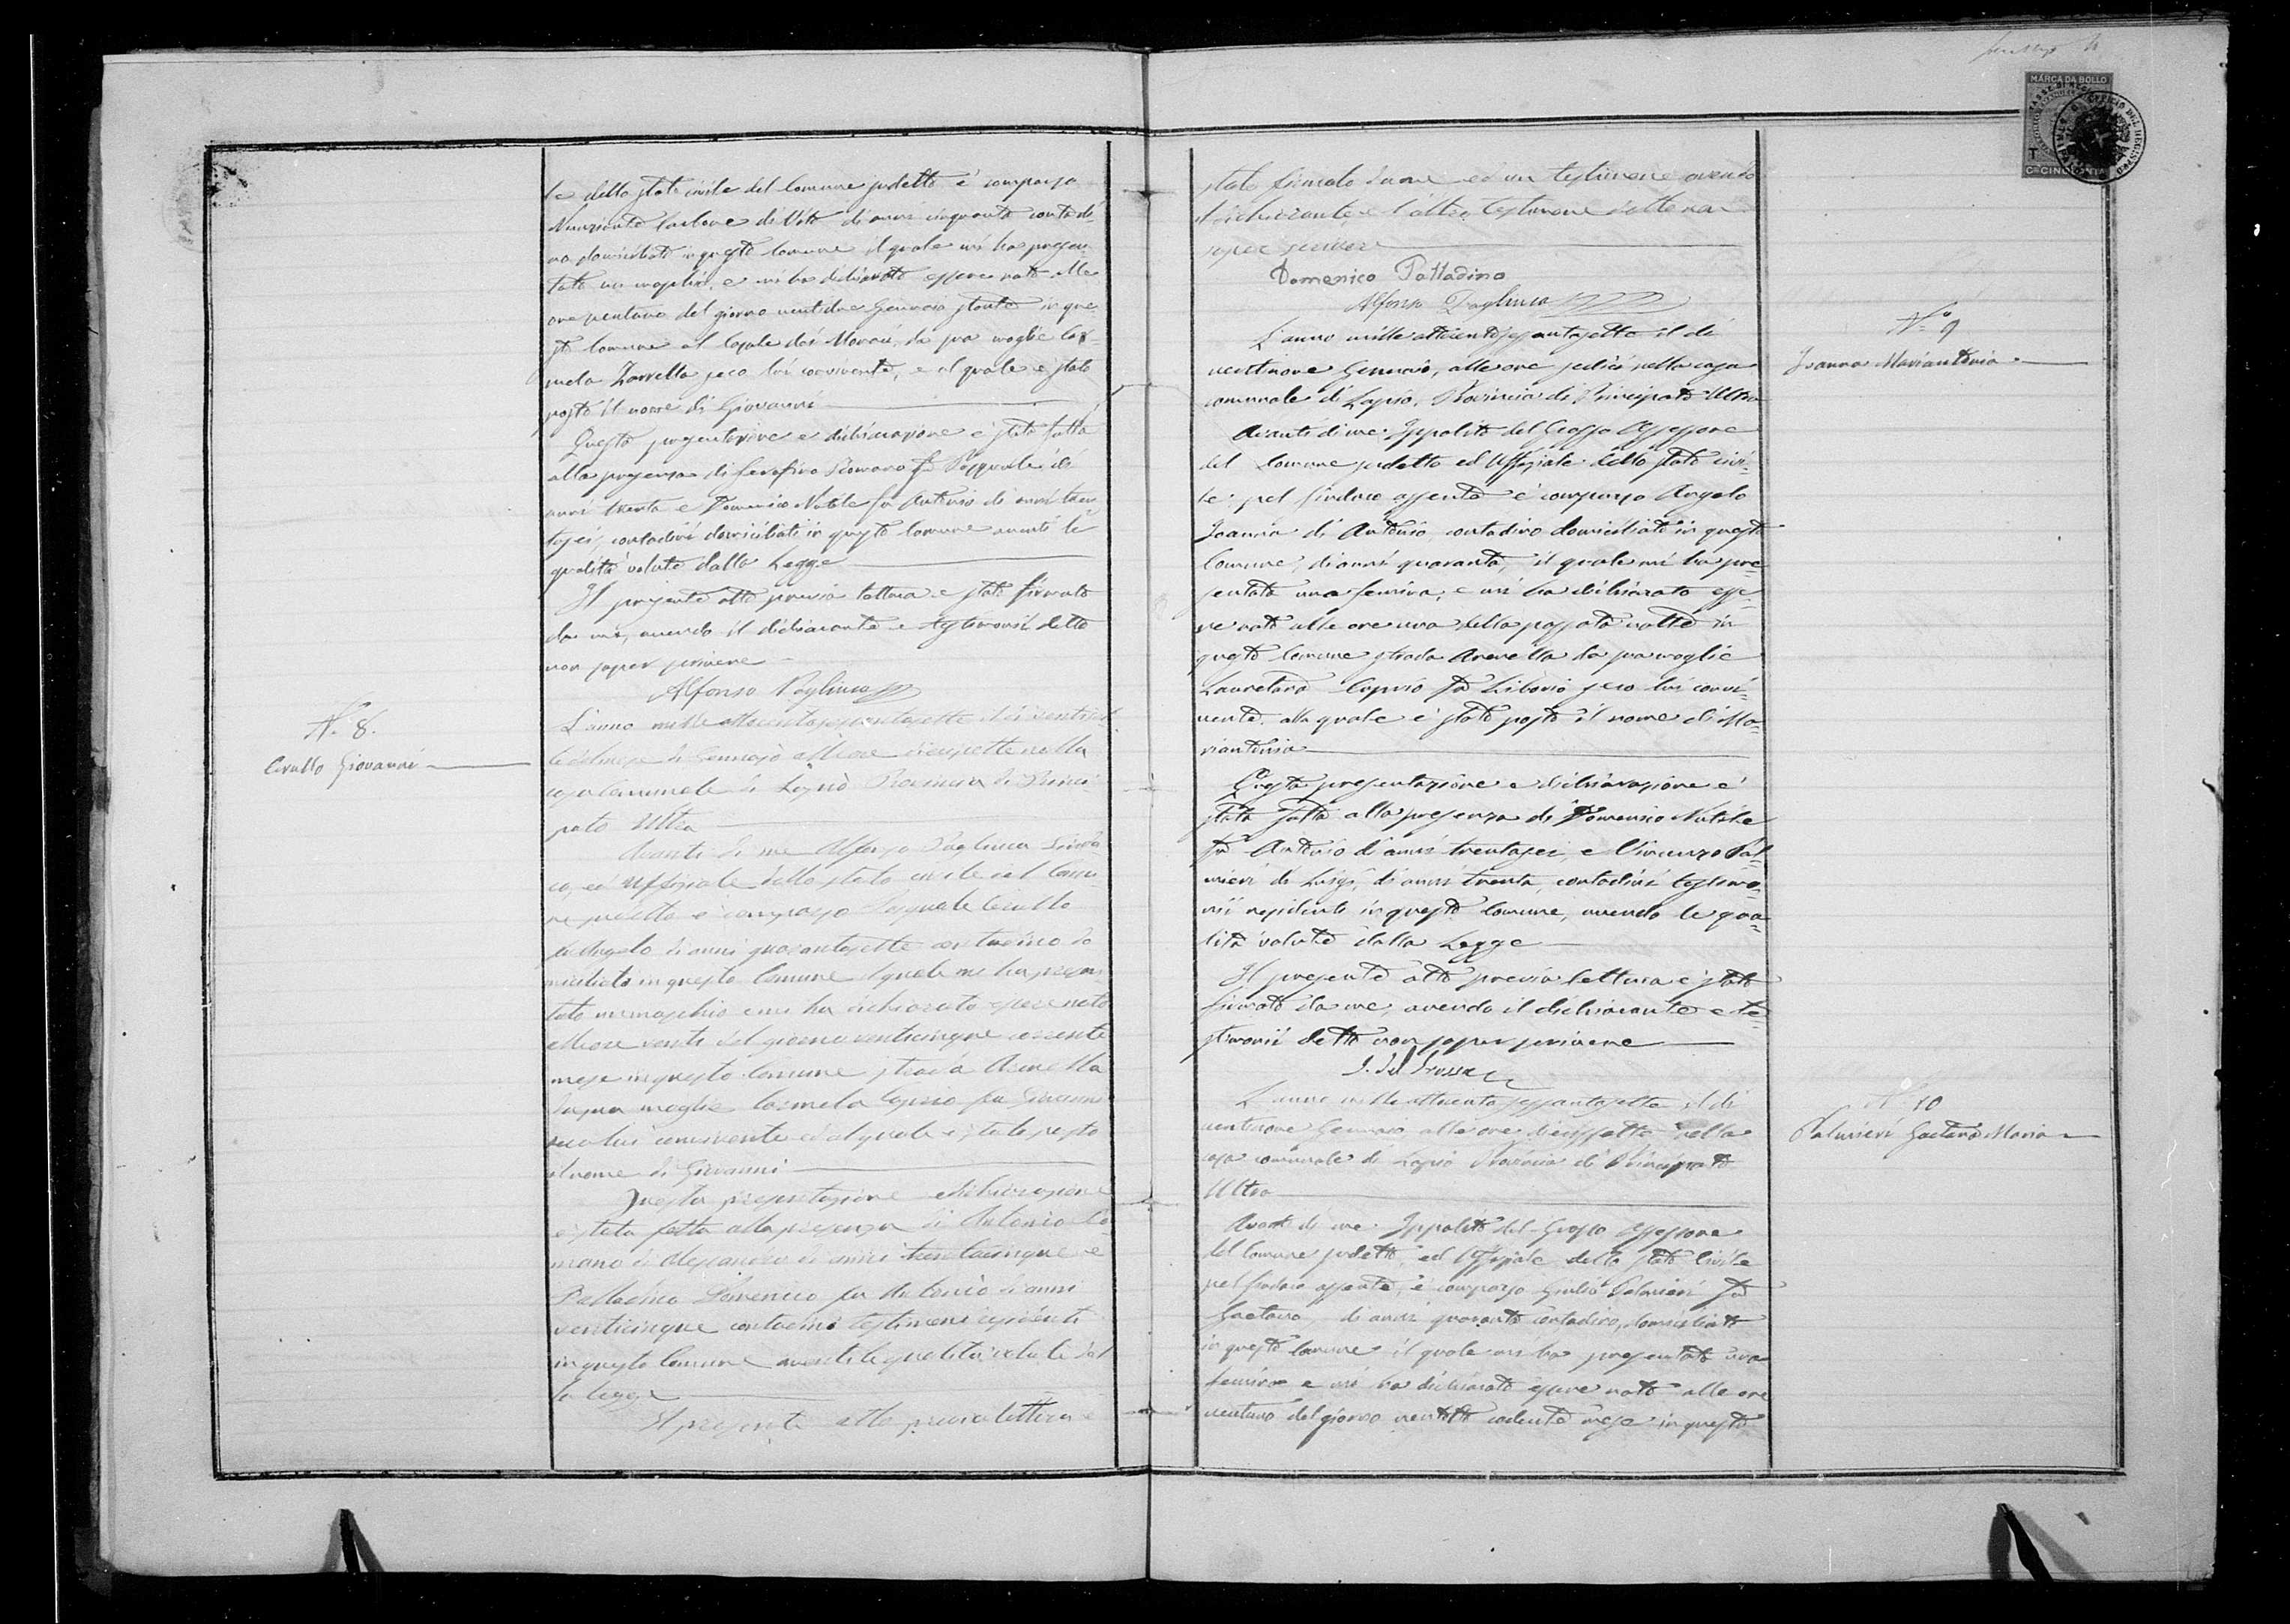 le dello stato civile del Comune sudetto è comparso
Nunziante Carbone di Vito di anni cinquanta contadi-
no domiciliato in questo Comune il quale mi ha presen-
tato un maschio, e mi ha dichiarato essere nato alle
ore ventuno del giorno ventidue Gennaro stante in que-
sto Comune al Casale dei Morani, da sua moglie Car-
mela Zarrella seco lui convivente, e al quale è stato
posto il nome di Giovanni
Questa presentazione e dichiarazione è stata fatta
alla presenza di Serafino Romano fu Pasquale di
anni trenta e Domenico Nutile fu Antonio di anni tren
tasei, contadini domiciliati in questo Comune aventi le
qualità volute dalla Legge
Il presente atto previa lettura è stato firmato
da me, avendo il dichiarante e testimonii detto
non saper scrivere
Alfonso Pagliuca
N. 8.
Cerullo Giovanni
L'anno mille ottocentosessantasette il dì ventiset
te del mese di Gennajo alle ore diecisette nella
casa Comunale di Lapio Provincia di Princi
pato Ultra
Avanti di me Alfonso Pagliuca Sinda-
co, ed Uffiziale dello stato civile del Comu-
ne sudetto è comparso Pasquale Cerullo
fu Angelo di anni quarantasette contadino do
miciliato in questo Comune il quale mi ha presen
tato un maschio e mi ha dichiarato essere nato
alle ore venti del giorno venticinque corrente
mese in questo Comune strada Arenella
da sua moglie Carmela Caprio fu Giovanni
seco lui convivente ed al quale è stato posto
il nome di Giovanni
Questa presentazione e dichiarazione
è stata fatta alla presenza di Antonio Ro
mano di Alessandro di anni trentacinque e
Palladino Domenico fu Antonio di anni
venticinque contadini testimoni residenti
in questo Comune aventi le qualità volute dal
la legge
Il presente atto previa lettura è
stato firmato da me ed un testimone avendo
il dichiarante, e l'altro testimone detto non
saper scrivere
Domenico Palladino
Alfonso Pagliuca
N.º 9
Joanna Mariantonia
L'anno mille ottocentosessantasette il dì
ventinove Gennaio, alle ore sedici nella casa
comunale di Lapio, Provincia di Principato Ultra
Avanti di me Ippolito del Grosso Assessore
del Comune sudetto ed Uffiziale dello stato civi-
le pel Sindaco assente è comparso Angelo
Joanna di Antonio, contadino domiciliato in questo
Comune, di anni quaranta, il quale mi ha pre-
sentata una femina, e mi ha dichiarato esse-
re nata alle ore una della passata notte in
questo Comune strada Arenella da sua moglie
Lauretana Caprio fu Liborio seco lui convi-
vente alla quale è stato posto il nome di Ma-
riantonia
Questa presentazione e dichiarazione è
stata fatta alla presenza di Domenico Nutile
fu Antonio di anni trentasei, e Vincenzo Pal-
mieri di Luigi, di anni trenta, contadini testimo-
nii residenti in questo Comune, avendo le qua-
lità volute dalla Legge
Il presente atto previa lettura è stato
firmato da me, avendo il dichiarante e te-
stimonii detto non saper scrivere
I. del Grosso
N. 10
Palmieri Gaetana Maria
L'anno mille ottocentosessantasette il dì
ventinove Gennaio alle ore diecissette nella
casa comunale di Lapio Provincia di Principato
Ultra
Avanti di me Ippolito del Grosso Assessore
del Comune sudetto, ed Uffiziale dello stato Civile
pel Sindaco assente, è comparso Giulio Palmieri fu
Gaetano, di anni quaranta contadino, domiciliato
in questo Comune il quale mi ha presentato una
femina e mi ha dichiarato essere nata alle ore
ventuno del giorno ventotto cadente mese in questo
MARCA DA BOLLO
Cmi CINQUANTA